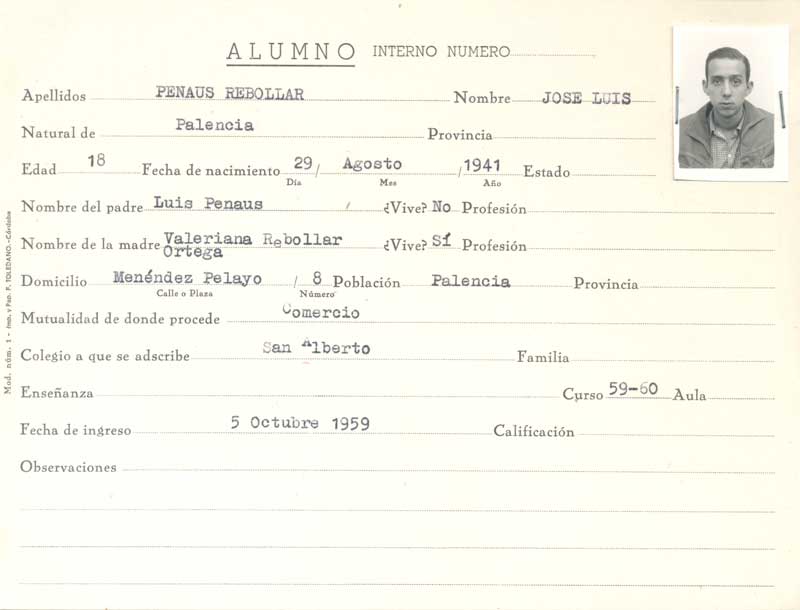 ALUMNO INTERNO NUMERO
Apellidos PENAUS REBOLLAR Nombre JOSE LUIS
Natural de Palencia Provincia
Edad 18 Fecha de nacimiento 29 / Agosto / 1941 Estado
Día Mes Año
Nombre del padre Luis Penaus ¿Vive? No Profesión
Nombre de la madre Valeriana Rebollar ¿Vive? Sí Profesión
Ortega
Domicilio Menéndez Pelayo / 8 Población Palencia Provincia
Calle o Plaza Número
Mutualidad de donde procede Comercio
Colegio a que se adscribe San Alberto Familia
Enseñanza Curso 59-60 Aula
Fecha de ingreso 5 Octubre 1959 Calificación
Observaciones
Mod. núm. 1 - Imp. y Pap. F. TOLEDANO.-Córdoba